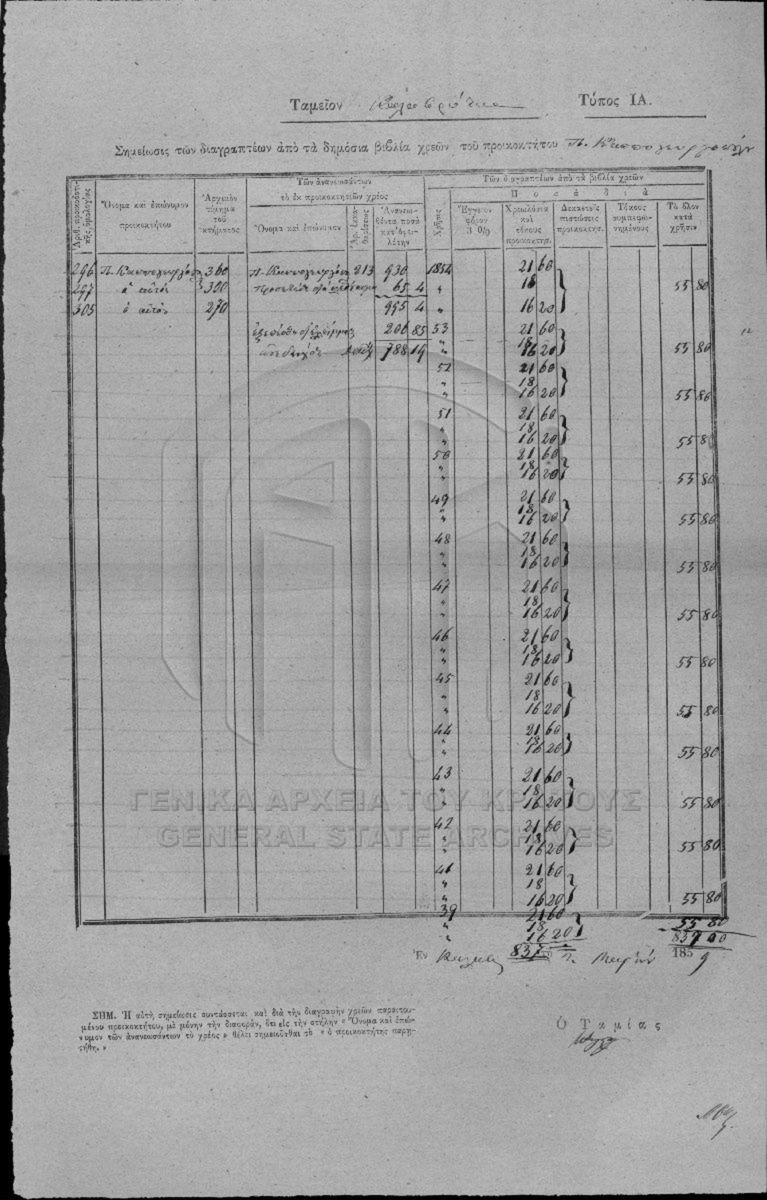 Ταμεῖον
Τύπος ΙΑ.
Σημείωσις τῶν διαγραπτέων ἀπὸ τὰ δημόσια βιβλία χρεῶν τοῦ προικοκτήτου Π.
Ἀριθ. προικοδοτικῆς ὁμολογίας
Ὄνομα καὶ ἐπώνυμον προικοκτήτου
Ἀρχικὸν τίμημα τοῦ κτήματος
Τῶν ἀνανεωσάντων
τὸ ἐκ προικοκτησιῶν χρέος
Ὄνομα καὶ ἐπώνυμον
Ἀνανεωθέντα ποσὰ κατ' ὀφειλέτην
Τῶν διαγραπτέων ἀπὸ τὰ βιβλία χρεῶν
Χρῆσις
Ποσὰ διὰ
Ἔγγειον φόρον 3 0/0
Χρεωλύσια καὶ τόκους προικοκτησ.
Δεκαετεῖς πιστώσεις προικοκτησ.
Τόκους συμπεφωνημένους
Τὸ ὅλον κατὰ χρῆσιν
296 Π. 360 Π. 213 930 1854 21 60
297 ὁ αὐτὸς 300 65 4 " 18 55 80
305 ὁ αὐτὸς 270 995 4 " 16 20
206 85 53 21 60
788 19 " 18
" 16 20 55 80
52 21 60
" 18
" 16 20 55 80
51 21 60
" 18
" 16 20 55 80
50 21 60
" 18
" 16 20 55 80
49 21 60
" 18
" 16 20 55 80
48 21 60
" 18
" 16 20 55 80
47 21 60
" 18
" 16 20 55 80
46 21 60
" 18
" 16 20 55 80
45 21 60
" 18
" 16 20 55 80
44 21 60
" 18
" 16 20 55 80
43 21 60
" 18
" 16 20 55 80
42 21 60
" 18
" 16 20 55 80
41 21 60
" 18
" 16 20 55 80
39 21 60
" 18
" 16 20 55 80
837 837 00
Ἐν 1859
ΣΗΜ. Ἡ αὐτὴ σημείωσις συντάσσεται καὶ διὰ τὴν διαγραφὴν χρεῶν παραιτου-
μένου προικοκτήτου, μὲ μόνην τὴν διαφορὰν, ὅτι εἰς τὴν στήλην « Ὄνομα καὶ ἐπώ-
νυμον τῶν ἀνανεωσάντων τὸ χρέος » θέλει σημειοῦσθαι τὸ « ὁ προικοκτήτης παρῃ-
τήθη. »
Ὁ Ταμίας
ΓΕΝΙΚΑ ΑΡΧΕΙΑ ΤΟΥ ΚΡΑΤΟΥΣ
GENERAL STATE ARCHIVES